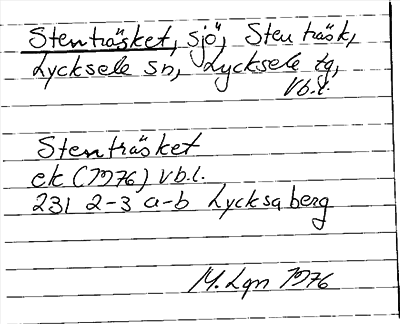 Stenträsket, sjö, Stenträsk,
Lycksele sn, Lycksele tg,
Vb.l.
Stenträsket
ek (1976) Vb.l.
231 2-3 a-b Lycksaberg
M. Lqn 1976